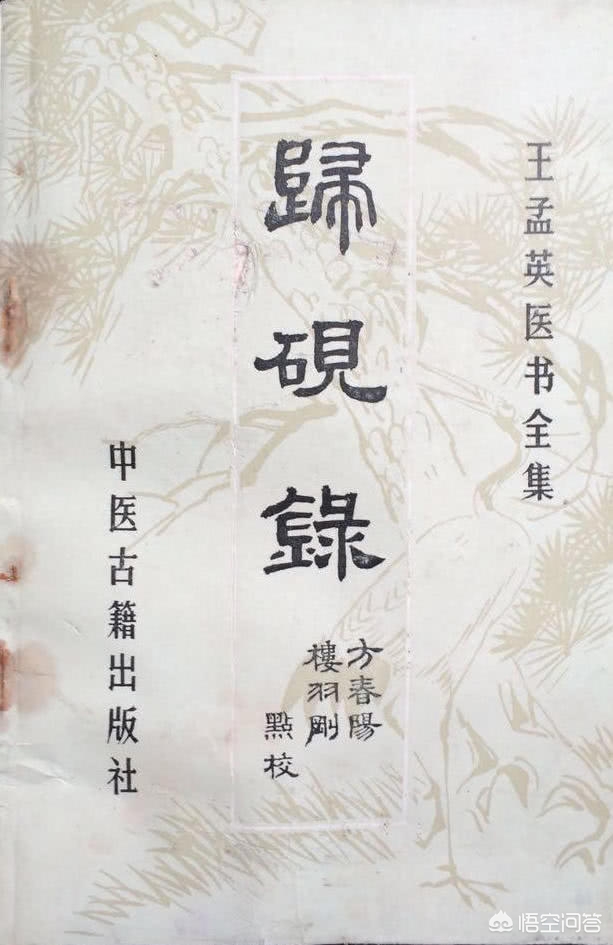 王孟英医书全集
歸硯錄
方春陽
樓羽剛
點校
中医古籍出版社
悟空问答